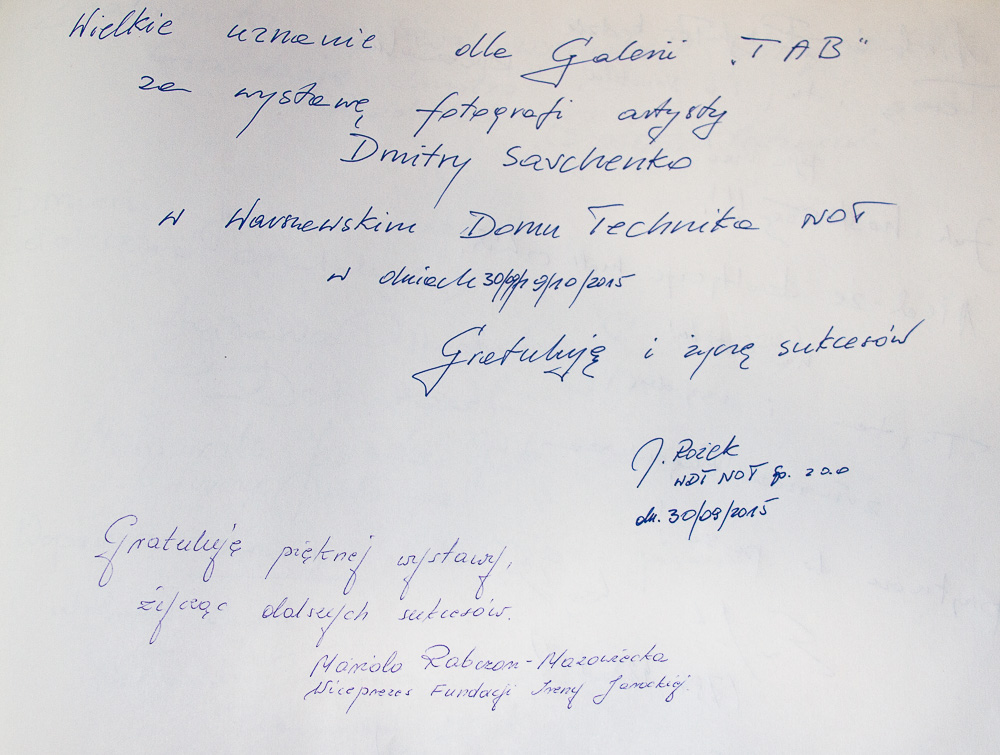 Wielkie uznanie dla Galerii „TAB"
za wystawę fotografi artysty
Dmitry Savchenko
w Warszawskim Domu Technika NOT
w dniach 30/09/ 9/10/2015
Gratuluję i życzę sukcesów
J. Rożek
WDT NOT Sp. z o.o
dn. 30/09/2015
Gratuluję pięknej wystawy,
życząc dalszych sukcesów.
Mariola Rabczon-Mazowiecka
Wiceprezes Fundacji Ireny Jarockiej.